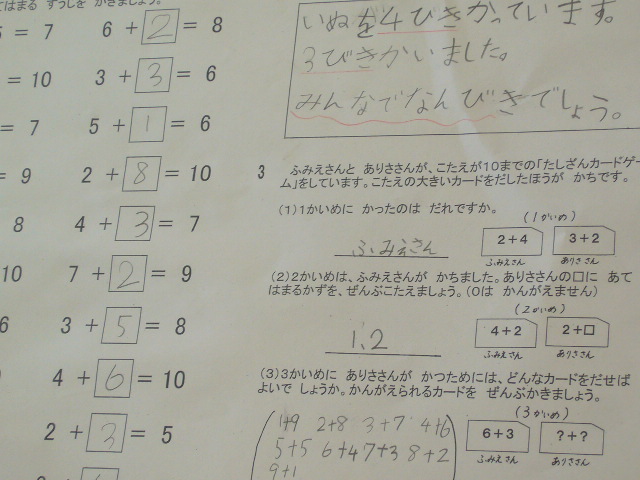 てはまる すうじを かきましょう。
= 7
6 + 2 = 8
= 10
3 + 3 = 6
= 7
5 + 1 = 6
= 9
2 + 8 = 10
8
4 + 3 = 7
10
7 + 2 = 9
6
3 + 5 = 8
4 + 6 = 10
2 + 3 = 5
いぬを4ひきかっています。
3びきかいました。
みんなでなんびきでしょう。
3 ふみえさんと ありささんが、こたえが10までの「たしざんカードゲー
ム」をしています。こたえの大きいカードをだしたほうが かちです。
(1)1かいめに かったのは だれですか。
(1かいめ)
ふみえさん
2+4 3+2
ふみえさん ありささん
(2)2かいめは、ふみえさんが かちました。ありささんの□に あて
はまるかずを、ぜんぶこたえましょう。(0は かんがえません)
(2かいめ)
1、2
4+2 2+□
ふみえさん ありささん
(3)3かいめに ありささんが かつためには、どんなカードをだせば
よいで しょうか。かんがえられるカードを ぜんぶかきましょう。
(3かいめ)
1+9 2+8 3+7 4+6
5+5 6+4 7+3 8+2
9+1
6+3 ?+?
ふみえさん ありささん